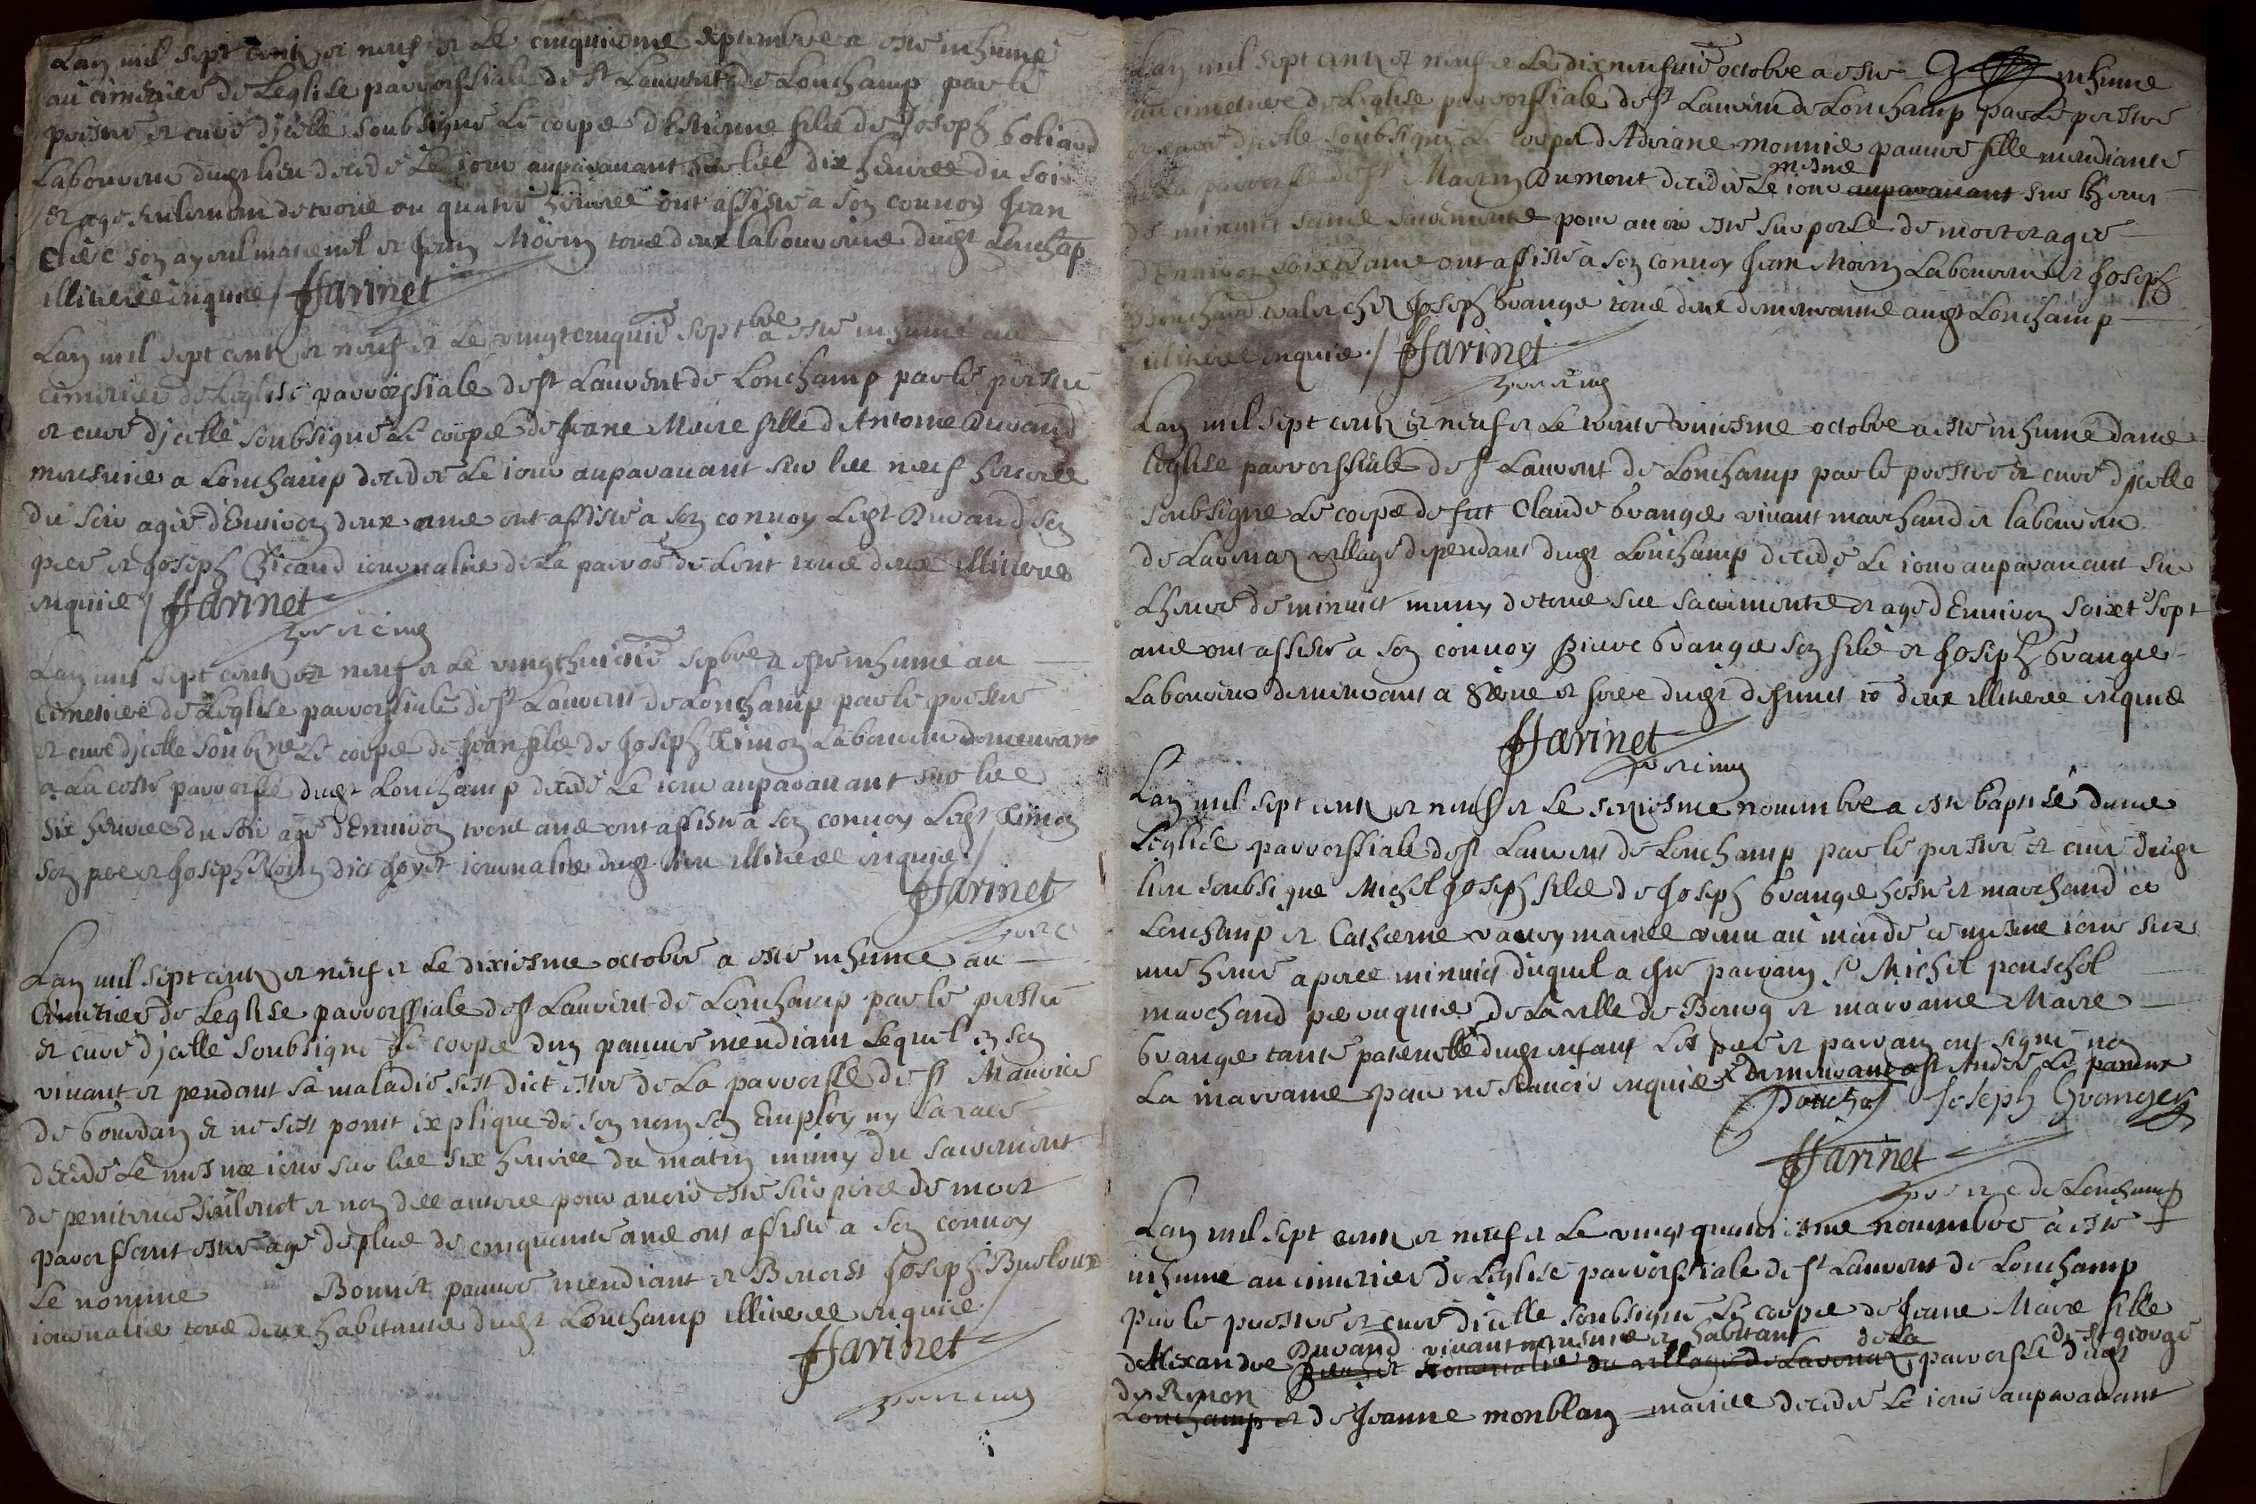 Lan mil sept centz et neuf et le cinquiesme septembre a esté inhumé
au cimetier de Leglise parroissiale de st Laurent de Lonchamp par le
prestre et curé d'jcelle soubsigné Le corps dEstienne fils de Joseph
Laboureur dugt lieu decedé Le jour auparavant sur les dix heures du soir
et agé seulement de trois ou quatre heures ont assisté a son convoy Jean
son ayeul maternel et Jean Morin tous deux laboureurs dugt Lonchap
illiterés enquis / Harinet
Lan mil sept centz et neuf et Le vingtcinquie septbre a esté inhumé au
cimetier de Leglise parroissiale de st Laurent de Lonchamp par le prestre
et curé d'jcelle soubsigné Le corps de Jeane Marie fille d Antoine Durand
meusnier a Lonchamp decedée Le jour auparavant sur les neuf heures
du soir agée d'Environ deux ans ont assisté a son convoy Legt Durand son
pere et Joseph journalier de la parroisse de Lent tous deux illiteres
enquis / Harinet
prre et curé
Lan mil sept centz et neuf et Le vingthuictie sepbre a esté inhumé au
Cimetier de Leglise parroissiale de st Laurent de Lonchamp par le prestre
et curé d'jcelle soubzné Le corps de Jean fils de Joseph Laboureur demeurant
a La coste parroisse dugt Lonchamp decedé Le jour auparavant sur les
six heures du soir agé d'Environ trois ans ont assisté a son convoy Legt
son pere et Joseph Morin dict journalier dugt lieu illiterés enquis /
Harinet
prre et c
Lan mil sept centz et neuf et Le dixiesme octobre a esté inhumé au
Cimetier de Leglise parroissiale de st Laurent de Lonchamp par le prestre
et curé d'jcelle soubsigné Le corps d'un pauvre mendiant Lequel en son
vivant et pendant sa maladie sest dict estre de La parroisse de st Maurice
de et ne sest point expliqué de son nom son Employ ny sa race
decedé Le mesme jour sur les six heures du matin muny du sacrement
de penitence seulemt et non des autres pour avoir esté surpris de mort
paroissant estre agé de plus de cinquante ans ont assisté a son convoy
Le nommé Bonnet pauvre mendiant et Benoist Joseph
journalier tous deux habitants dugt Lonchamp illiterés enquis /
Harinet
prre et curé
Lan mil sept centz et neuf et Le dixneufuie octobre a esté inhumé
au cimetiere de Leglise parroissiale de st Laurent de Lonchamp par Le prestre
et curé d'jcelle soubsigné Le corps d Adriane monnie pauvre fille mendiante
de La parroisse de st Martin Dumont decedée Le jour mesme auparavant sur Lheure
de minuict sans sacrements pour avoir esté surprise de mort et agée
d'Environ soixte ans ont assisté a son convoy Jean Morin Laboureur et Joseph
Bouchard valet chez Joseph Grange tous deux demeurants augt Lonchamp
illiterés enquis / Harinet
prre et curé
Lan mil sept centz et neuf et Le trente uniesme octobre a esté inhumé dans
Leglise parroissiale de st Laurent de Lonchamp par le prestre et curé d'jcelle
soubsigné Le corps de fut Claude Grange vivant marchand et laboureur
de Lavernaz village dependant dugt Lonchamp decedé Le jour auparavant sur
Lheure de minuict muny de tous ses sacrements et agé d'Environ soixte sept
ans ont assisté a son convoy Pierre Grange son fils et Joseph Grange
Laboureur demeurant a et frere dugt defunct ts deux illiterés enquis
Harinet
prre et curé
Lan mil sept centz et neuf et Le seziesme novembre a esté baptisé dans
Leglise parroissiale de st Laurent de Lonchamp par le prestre et curé dugt
lieu soubsigné Michel Joseph fils de Joseph Grange hoste et marchand a
Lonchamp et Catherine mariés venu au monde ce mesme jour sur
une heure apres minuict duquel a esté parrain sr Michel
marchand perruquier de La ville de Bourg et marraine Marie
Grange tante paternelle dugt enfant Les pere et parrain ont signé non
La marraine pour ne scavoir enquise demeurant a st André Le panoux
Joseph Grange
Harinet
prre et c de Lonchamp
Lan mil sept centz et neuf et Le vingt quatriesme novembre a esté
inhumé au cimetier de Leglise parroissiale de st Laurent de Lonchamp
par le prestre et curé d'jcelle soubsigné Le corps de Jeane Marie fille
Durand vivant meusnier et habitant de La de st george
dAlexandre journalier du village de Lavernaz parroisse dugt
de Renon
Lonchamp et de Jeanne monblan mariés decedée Le jour auparavant